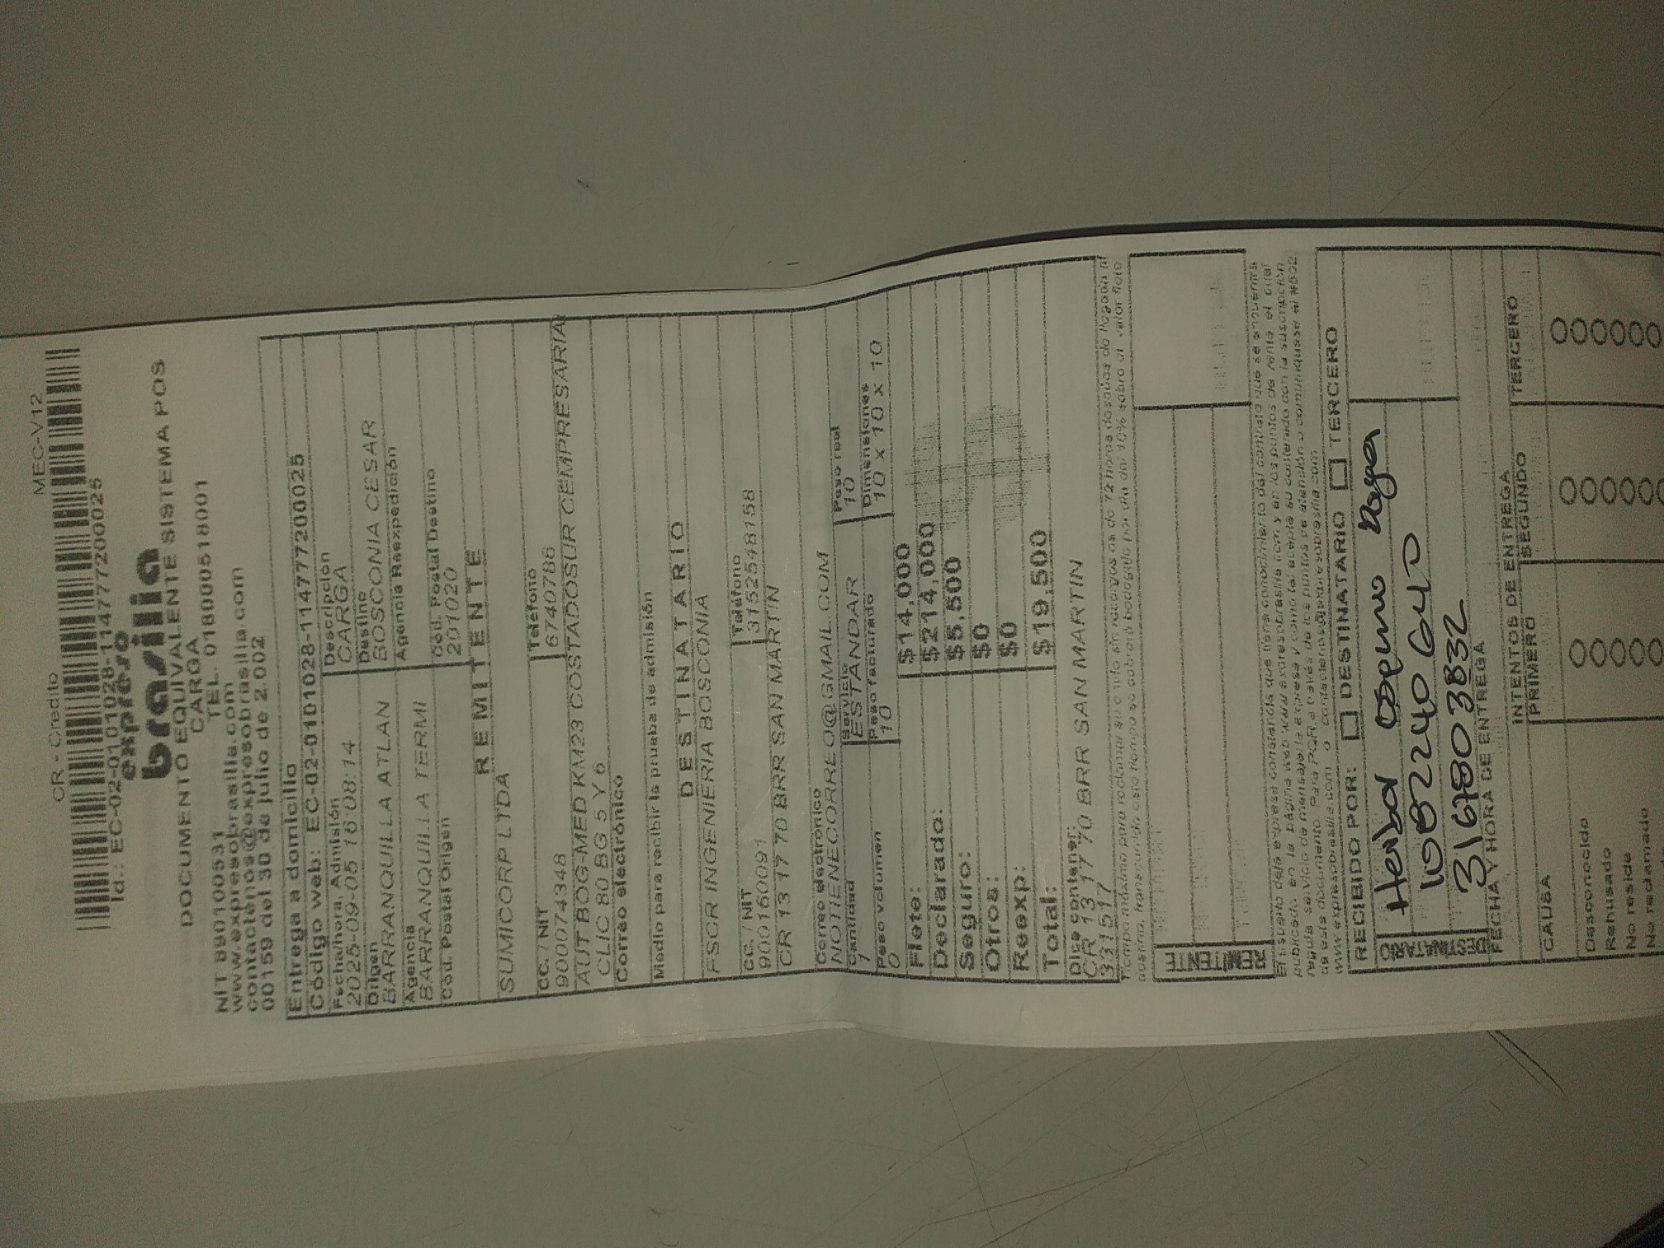 CR - Credito MEC-V12
Id.: EC-02-0101028-114777200025
expreso
brasilia
DOCUMENTO EQUIVALENTE SISTEMA POS
CARGA
TEL. 018000518001
NIT 890100531
www.expresobrasilia.com
contactenos@expresobrasilia.com
00159 del 30 de julio de 2.002
Entrega a domicilio
Código web: EC-02-0101028-1147772000025
Fecha/hora. Admisión Descripción
2025-09-05 16:08:14 CARGA
Origen Destino
BARRANQUILLA ATLAN BOSCONIA CESAR
Agencia Agencia Reexpedición
BARRANQUILLA TERMI
Cód. Postal Origen Cód. Postal Destino
201020
REMITENTE
SUMICORP LTDA
CC. / NIT Teléfono
900074348 6740786
AUT BOG-MED KM23 COSTADOSUR CEMPRESARIAL
CLIC 80 BG 5 Y 6
Correo electrónico
Medio para recibir la prueba de admisión
DESTINATARIO
FSGR INGENIERIA BOSCONIA
CC. / NIT Teléfono
900160091 3152548158
CR 13 17 70 BRR SAN MARTIN
Correo electrónico
NOTIENECORREO@GMAIL.COM
Cantidad Servicio Peso real
1 ESTANDAR 10
Peso volumen Peso facturado Dimensiones
0 10 10 x 10 x 10
Flete: $14,000
Declarado: $214,000
Seguro: $5,500
Otros: $0
Reexp: $0
Total: $19,500
Dice contener:
CR 13 17 70 BRR SAN MARTIN
331517
REMITENTE
RECIBIDO POR: DESTINATARIO TERCERO
DESTINATARIO
Ospino
1082240640
3167803832
FECHA Y HORA DE ENTREGA
INTENTOS DE ENTREGA
PRIMERO SEGUNDO TERCERO
CAUSA
Desconocido
Rehusado
No reside
No reclamado